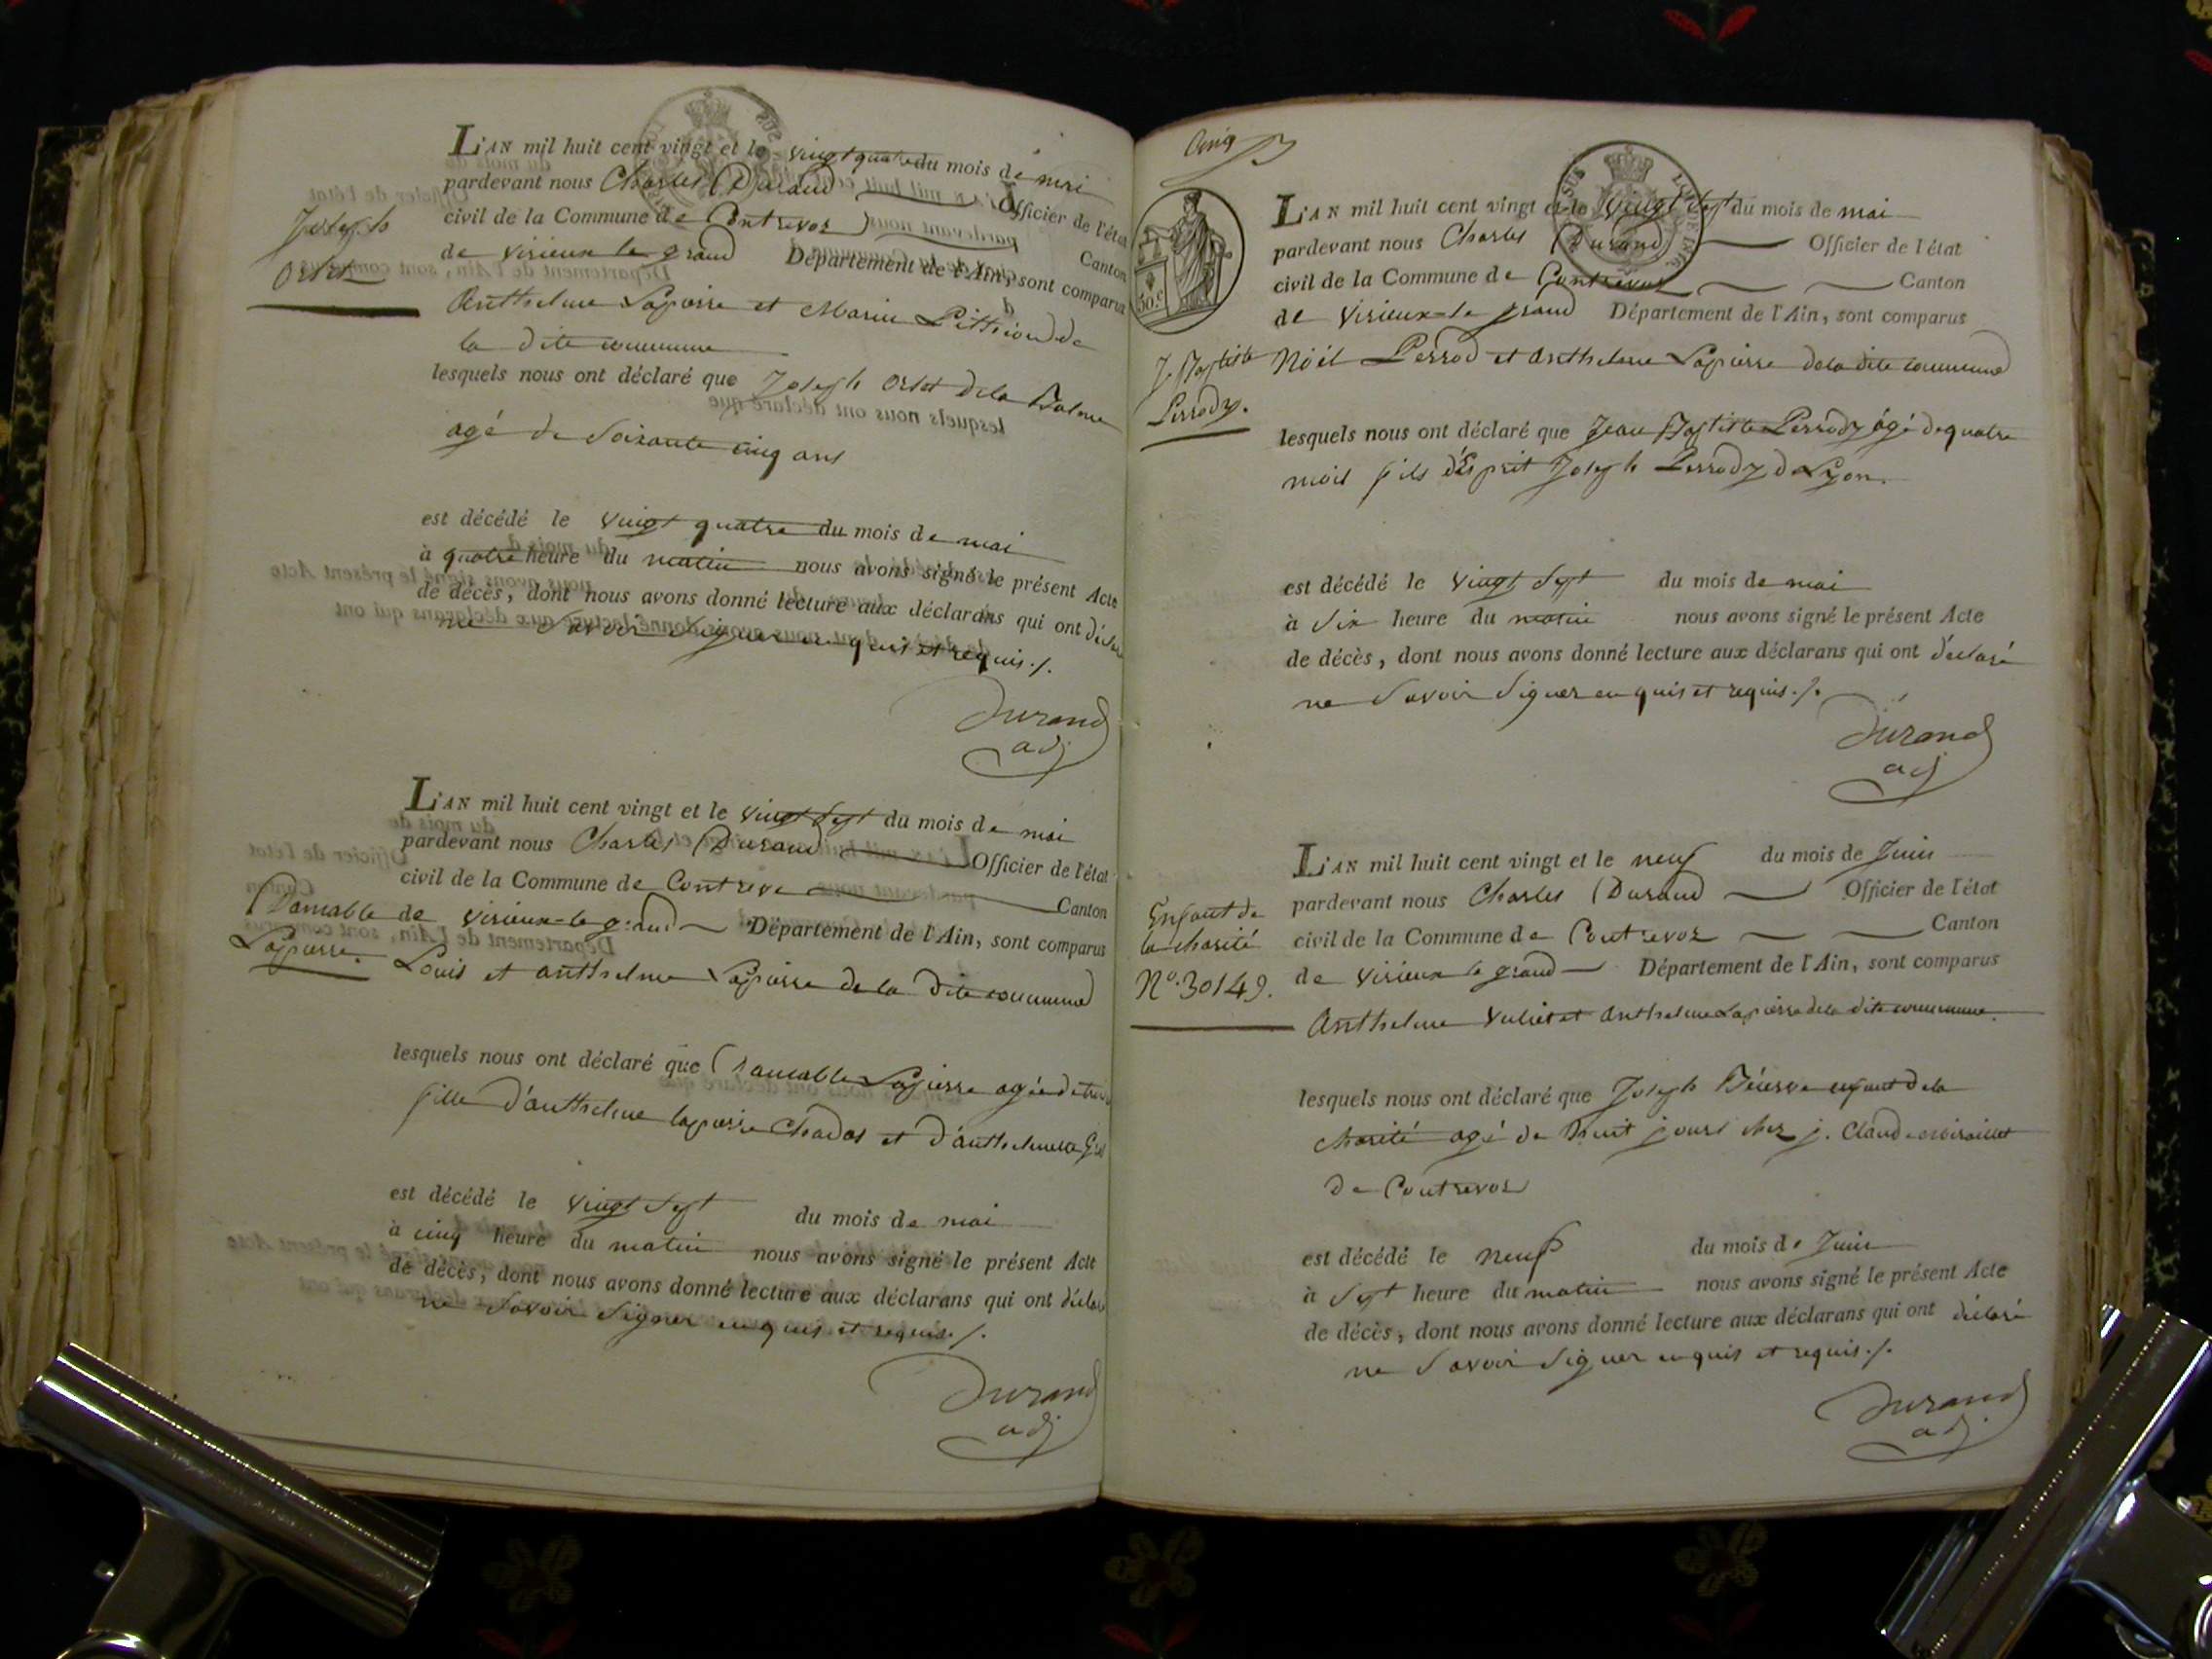 Joseph
Ortet
L'AN mil huit cent vingt et le vingt quatre du mois de mai
pardevant nous Charles Durand Officier de l'état
civil de la Commune de Contrevoz Canton
de Virieux le grand Département de l'Ain, sont comparus
Anthelme Lapierre et Marin Pittion de
la dite commune
lesquels nous ont déclaré que Joseph Ortet de la Balme
agé de Soixante cinq ans
est décédé le vingt quatre du mois de mai
à quatre heure du matin nous avons signé le présent Acte
de décès, dont nous avons donné lecture aux déclarans qui ont déclaré
ne Savoir Signer enquis et requis ./.
Durand
adj
Lapierre
L'AN mil huit cent vingt et le vingt Sept du mois de mai
pardevant nous Charles Durand Officier de l'état
civil de la Commune de Contrevo Canton
de Virieux-le grand Département de l'Ain, sont comparus
Louis et anthelme Lapierre de la Dite commune
lesquels nous ont déclaré que Lapierre agée de
fille d'anthelme lapierre et d'anthelmette
est décédé le vingt Sept du mois de mai
à cinq heure du matin nous avons signé le présent Acte
de décès, dont nous avons donné lecture aux déclarans qui ont déclaré
ne Savoir Signer enquis et requis ./.
Durand
adj
cinq
50 c
J. Baptiste
Perrody.
L'AN mil huit cent vingt et le vingt Sept du mois de mai
pardevant nous Charles Durand Officier de l'état
civil de la Commune de Contrevoz Canton
de Virieux-le grand Département de l'Ain, sont comparus
Noël Perrod et anthelme Lapierre de la dite commune
lesquels nous ont déclaré que Jean Baptiste Perrody âgé de quatre
mois fils d'Esprit Joseph Perrody de Lyon.
est décédé le vingt Sept du mois de mai
à Six heure du matin nous avons signé le présent Acte
de décès, dont nous avons donné lecture aux déclarans qui ont déclaré
ne Savoir Signer enquis et requis ./.
Durand
adj
Enfant de
la charité
N° 30149.
L'AN mil huit cent vingt et le neuf du mois de Juin
pardevant nous Charles Durand Officier de l'état
civil de la Commune de Contrevoz Canton
de Virieux le grand Département de l'Ain, sont comparus
Anthelme Vuliet et Anthelme Lapierre de la dite commune.
lesquels nous ont déclaré que Joseph enfant de la
charité agé de huit jours chez j. Claude
de Contrevoz
est décédé le neuf du mois de Juin
à Sept heure du matin nous avons signé le présent Acte
de décès, dont nous avons donné lecture aux déclarans qui ont déclaré
ne Savoir Signer enquis et requis ./.
Durand
adj